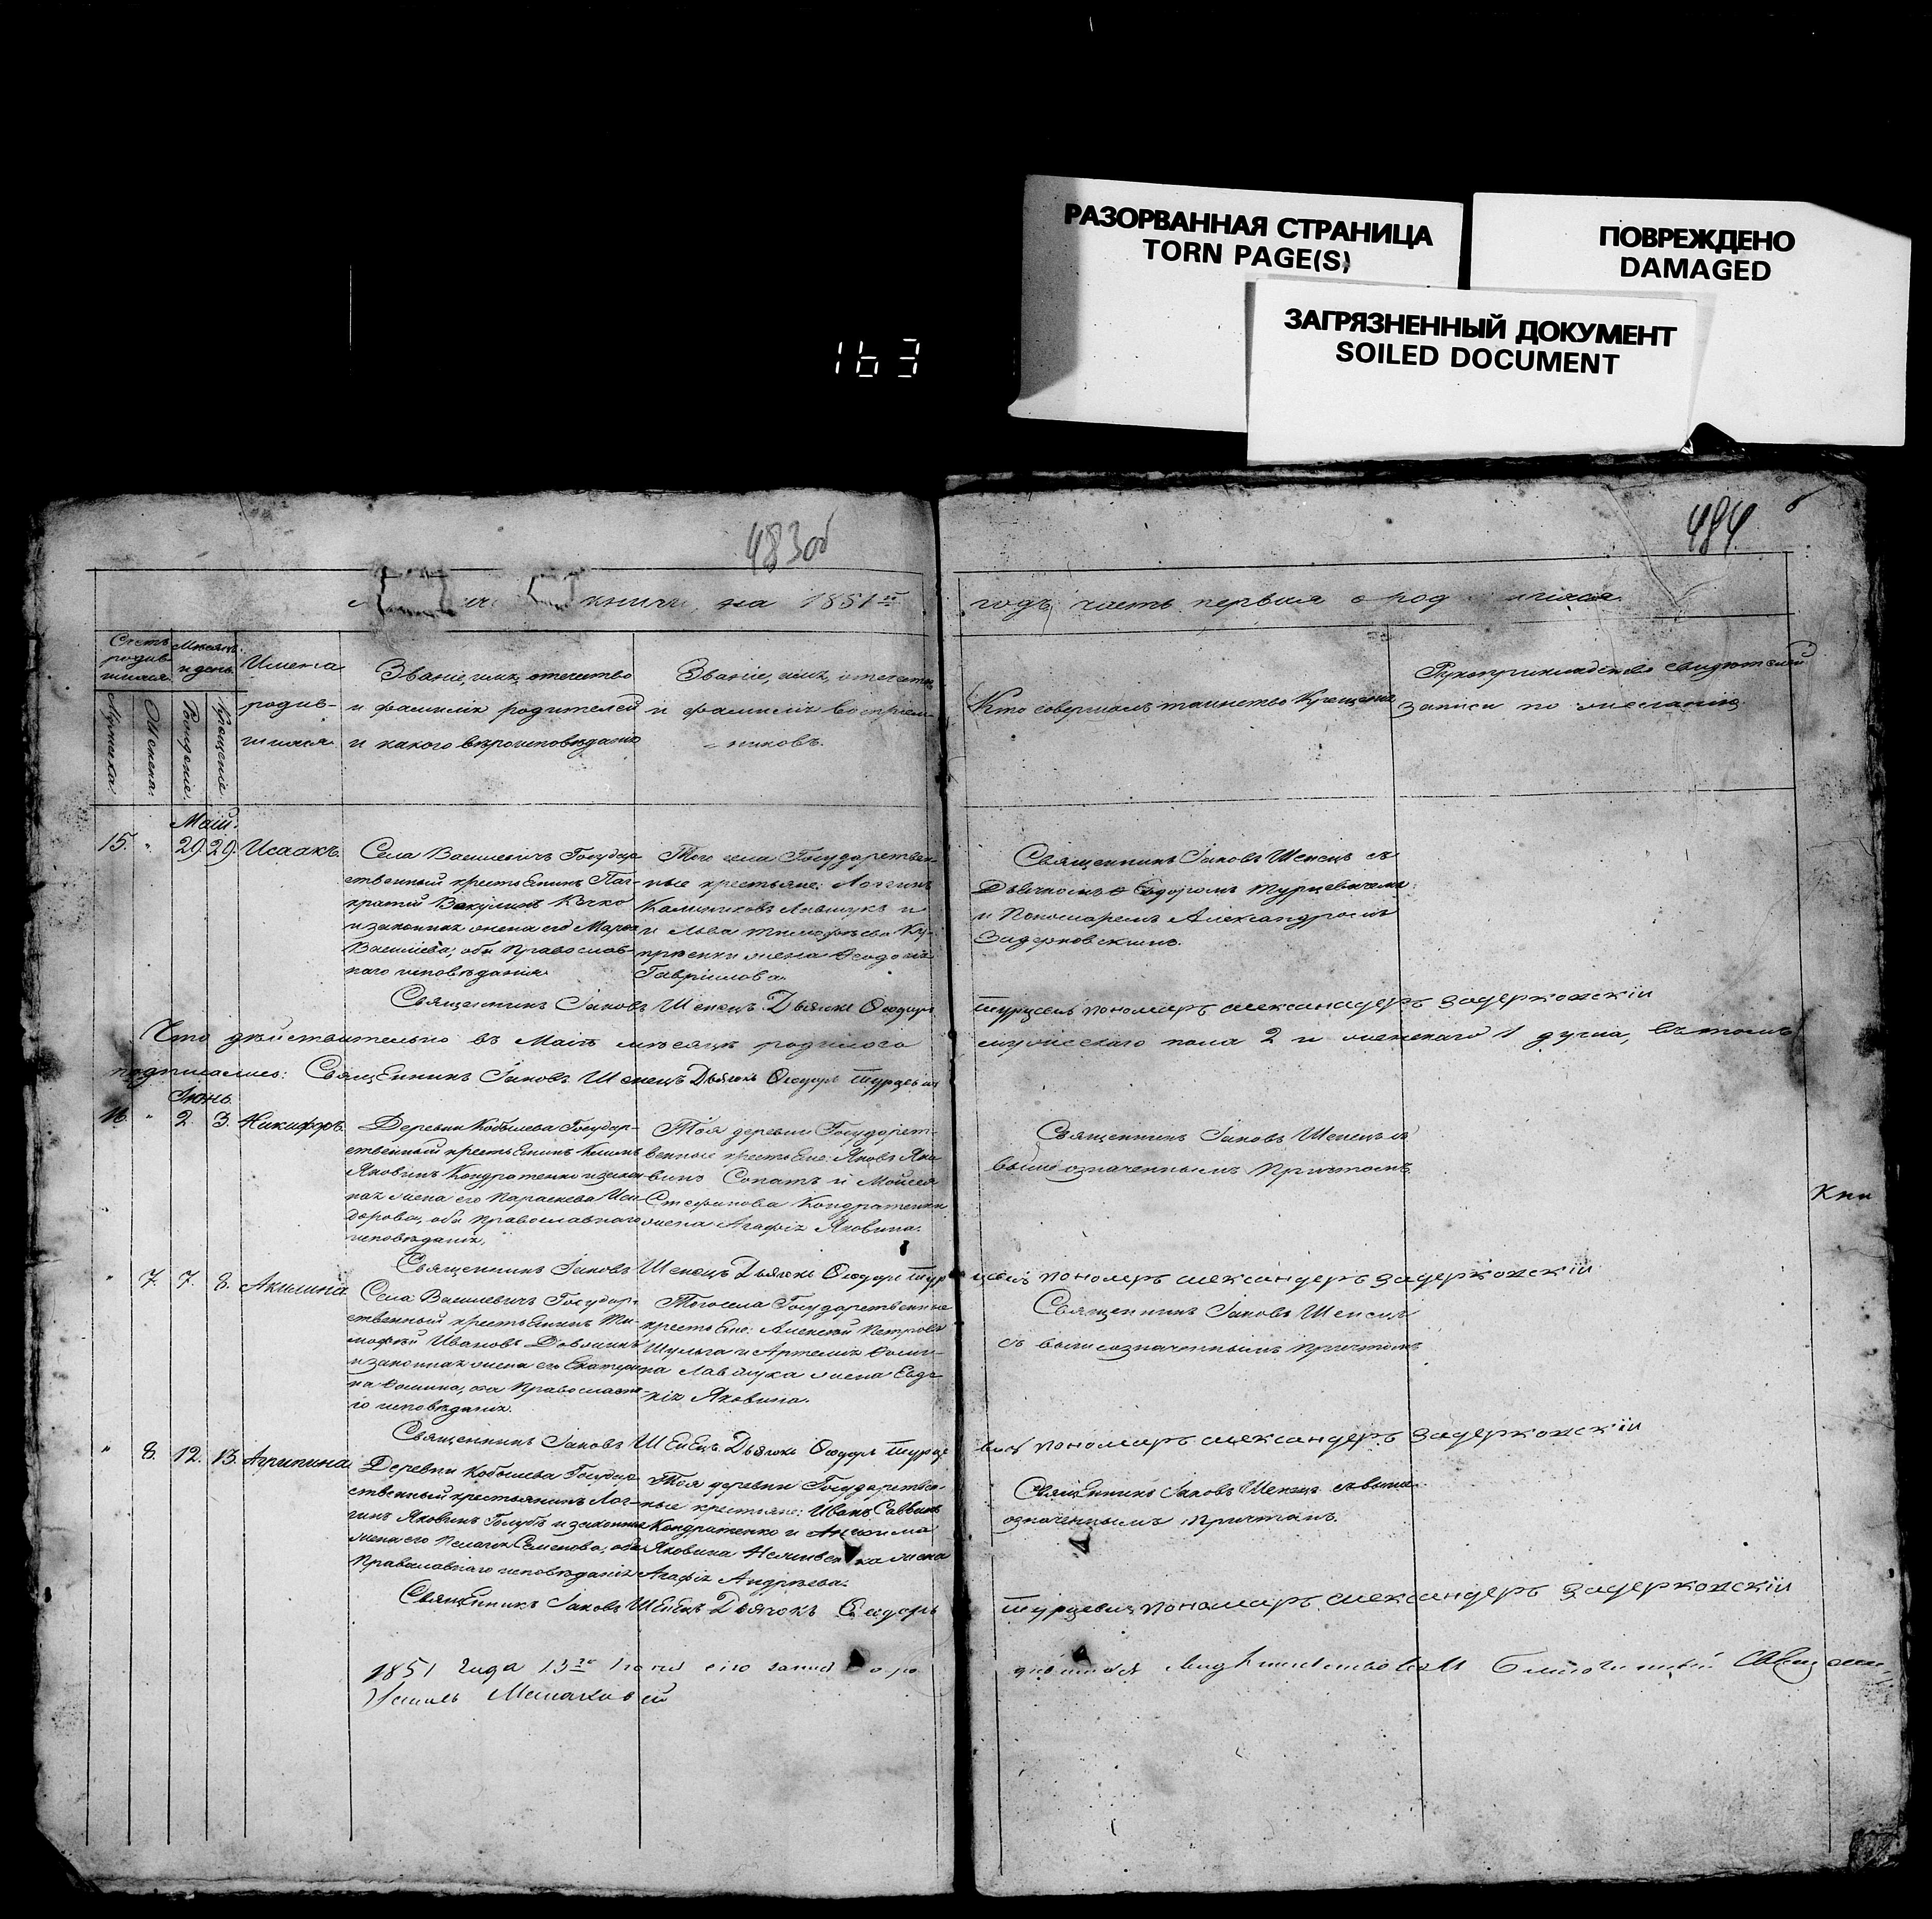 РАЗОРВАННАЯ СТРАНИЦА
TORN PAGE(S)
ПОВРЕЖДЕНО
DAMAGED
ЗАГРЯЗНЕННЫЙ ДОКУМЕНТ
SOILED DOCUMENT
163
483об
484
книги на 1851й
годъ, часть первая о род
Счетъ родив-шихся
Мѣсяцъ и день
Имена родив-шихся
Званіе, имя, отечество
и фамилія родителей
и какого вѣроисповѣданія
Званіе, имя, отечество
и фамилія воспріем-
никовъ.
Кто совершалъ таинство Крещенія
Рукоприкладство свидѣтелей
записи по желанію
Мужеска.
Женска.
Рожденіе.
Крещеніе.
Май.
15. " 29. 29. Исаакъ.
Села Василевичъ Государ-
ственный крестьянинъ Пан-
кратій Вакулинъ Кочко
и законная жена его Марѳа
Васильева, оба Православ-
наго исповѣданія.
Того села Государствен-
ные крестьяне: Логгинъ
и Льва Тимофѣева Ку-
жена Ѳеодосія
Гавріилова.
Священникъ Іаковъ Шенецъ съ
Дьячкомъ Ѳеодоромъ Турцевичемъ
и Пономаремъ Александромъ
Задерковскимъ.
Священникъ Іаковъ Шенецъ Дьячокъ Ѳеодоръ
Турцевич Пономаръ Александеръ Задерковскій
Что дѣйствительно въ Маѣ мѣсяцѣ родилось
мужескаго пола 2 и женскаго 1 душа, въ томъ
подписались: Священникъ Іаковъ Шенецъ Дьячокъ Ѳеодоръ Турцевич
Іюнь.
16. " 2. 3. Никифоръ.
Деревни Кобылева Государ-
ственный крестьянинъ
Яковинъ Кондратенко и закон-
ная жена его Параскева Иси-
дорова, оба Православнаго
исповѣданія,
Тоя деревни Государст-
венные крестьяне: Яковъ Яко-
винъ Сопатъ и Моисея
Стефанова Кондратенки
жена Агафія Яковина.
Священникъ Іаковъ Шенецъ съ
вышеозначеннымъ Причтомъ.
Кни
Священникъ Іаковъ Шенецъ Дьячокъ Ѳеодоръ Тур
цевич Пономаръ Александеръ Задерковскій
" 7. 7. 8. Акилина
Села Василевичъ Государ-
ственный крестьянинъ Ти-
мофей Ивановъ
и законная жена его Екатери-
на Ѳомина, оба Православна-
го исповѣданія.
Того села Государственные
крестьяне: Алексѣй Петровъ
Шульга и Артемія Ѳоми-
на жена Евдо-
кія Яковина.
Священникъ Іаковъ Шенецъ
съ вышеозначеннымъ Причтомъ
Священникъ Іаковъ Шенецъ Дьячокъ Ѳеодоръ Турце
вич Пономаръ Александеръ Задерковскій
" 8. 12. 13. Агрипина
Деревни Кобылева Государ-
ственный крестьянинъ Лог-
гинъ Яковинъ Голубъ и законная
жена его Пелагія Семенова, оба
Православнаго исповѣданія
Тоя деревни Государствен-
ные крестьяне: Иванъ Саввинъ
Кондратенко и
Яковина жена
Агафія Андрѣева.
Священникъ Іаковъ Шенецъ съ выше-
означеннымъ Причтомъ.
Священникъ Іаковъ Шенецъ Дьячокъ Ѳеодоръ
Турцевич Пономаръ Александеръ Задерковскій
1851 года 13го Іюня сію запись о ро
Благочинный Священ